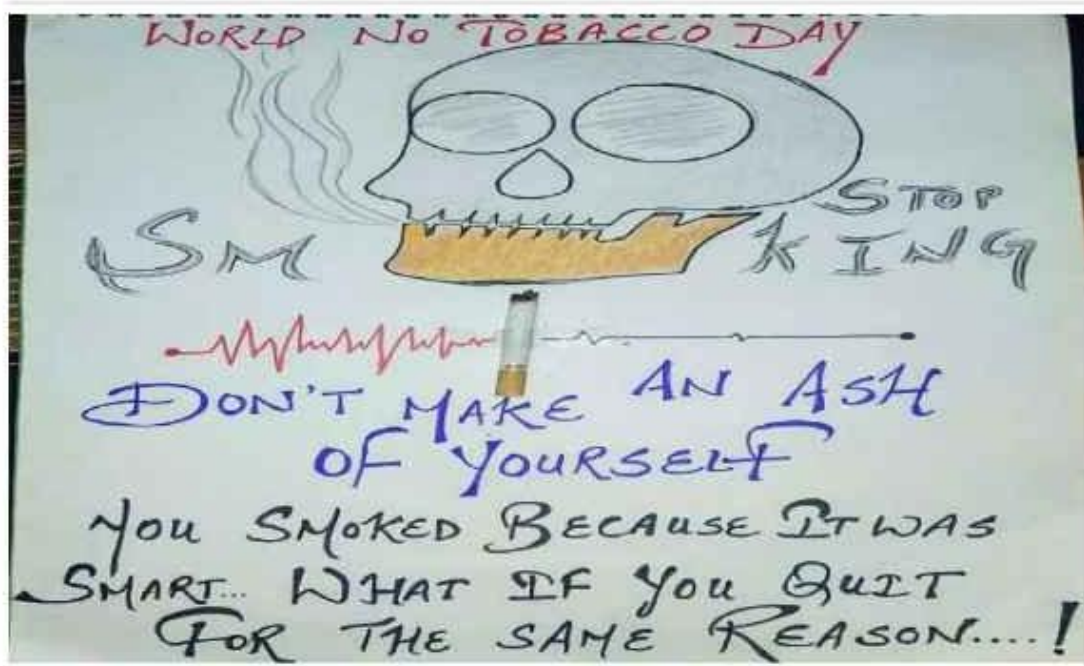 WORLD NO TOBACCO DAY
STOP
SM KING
DON'T MAKE AN ASH
OF YOURSELF
YOU SMOKED BECAUSE IT WAS
SMART... WHAT IF YOU QUIT
FOR THE SAME REASON....!